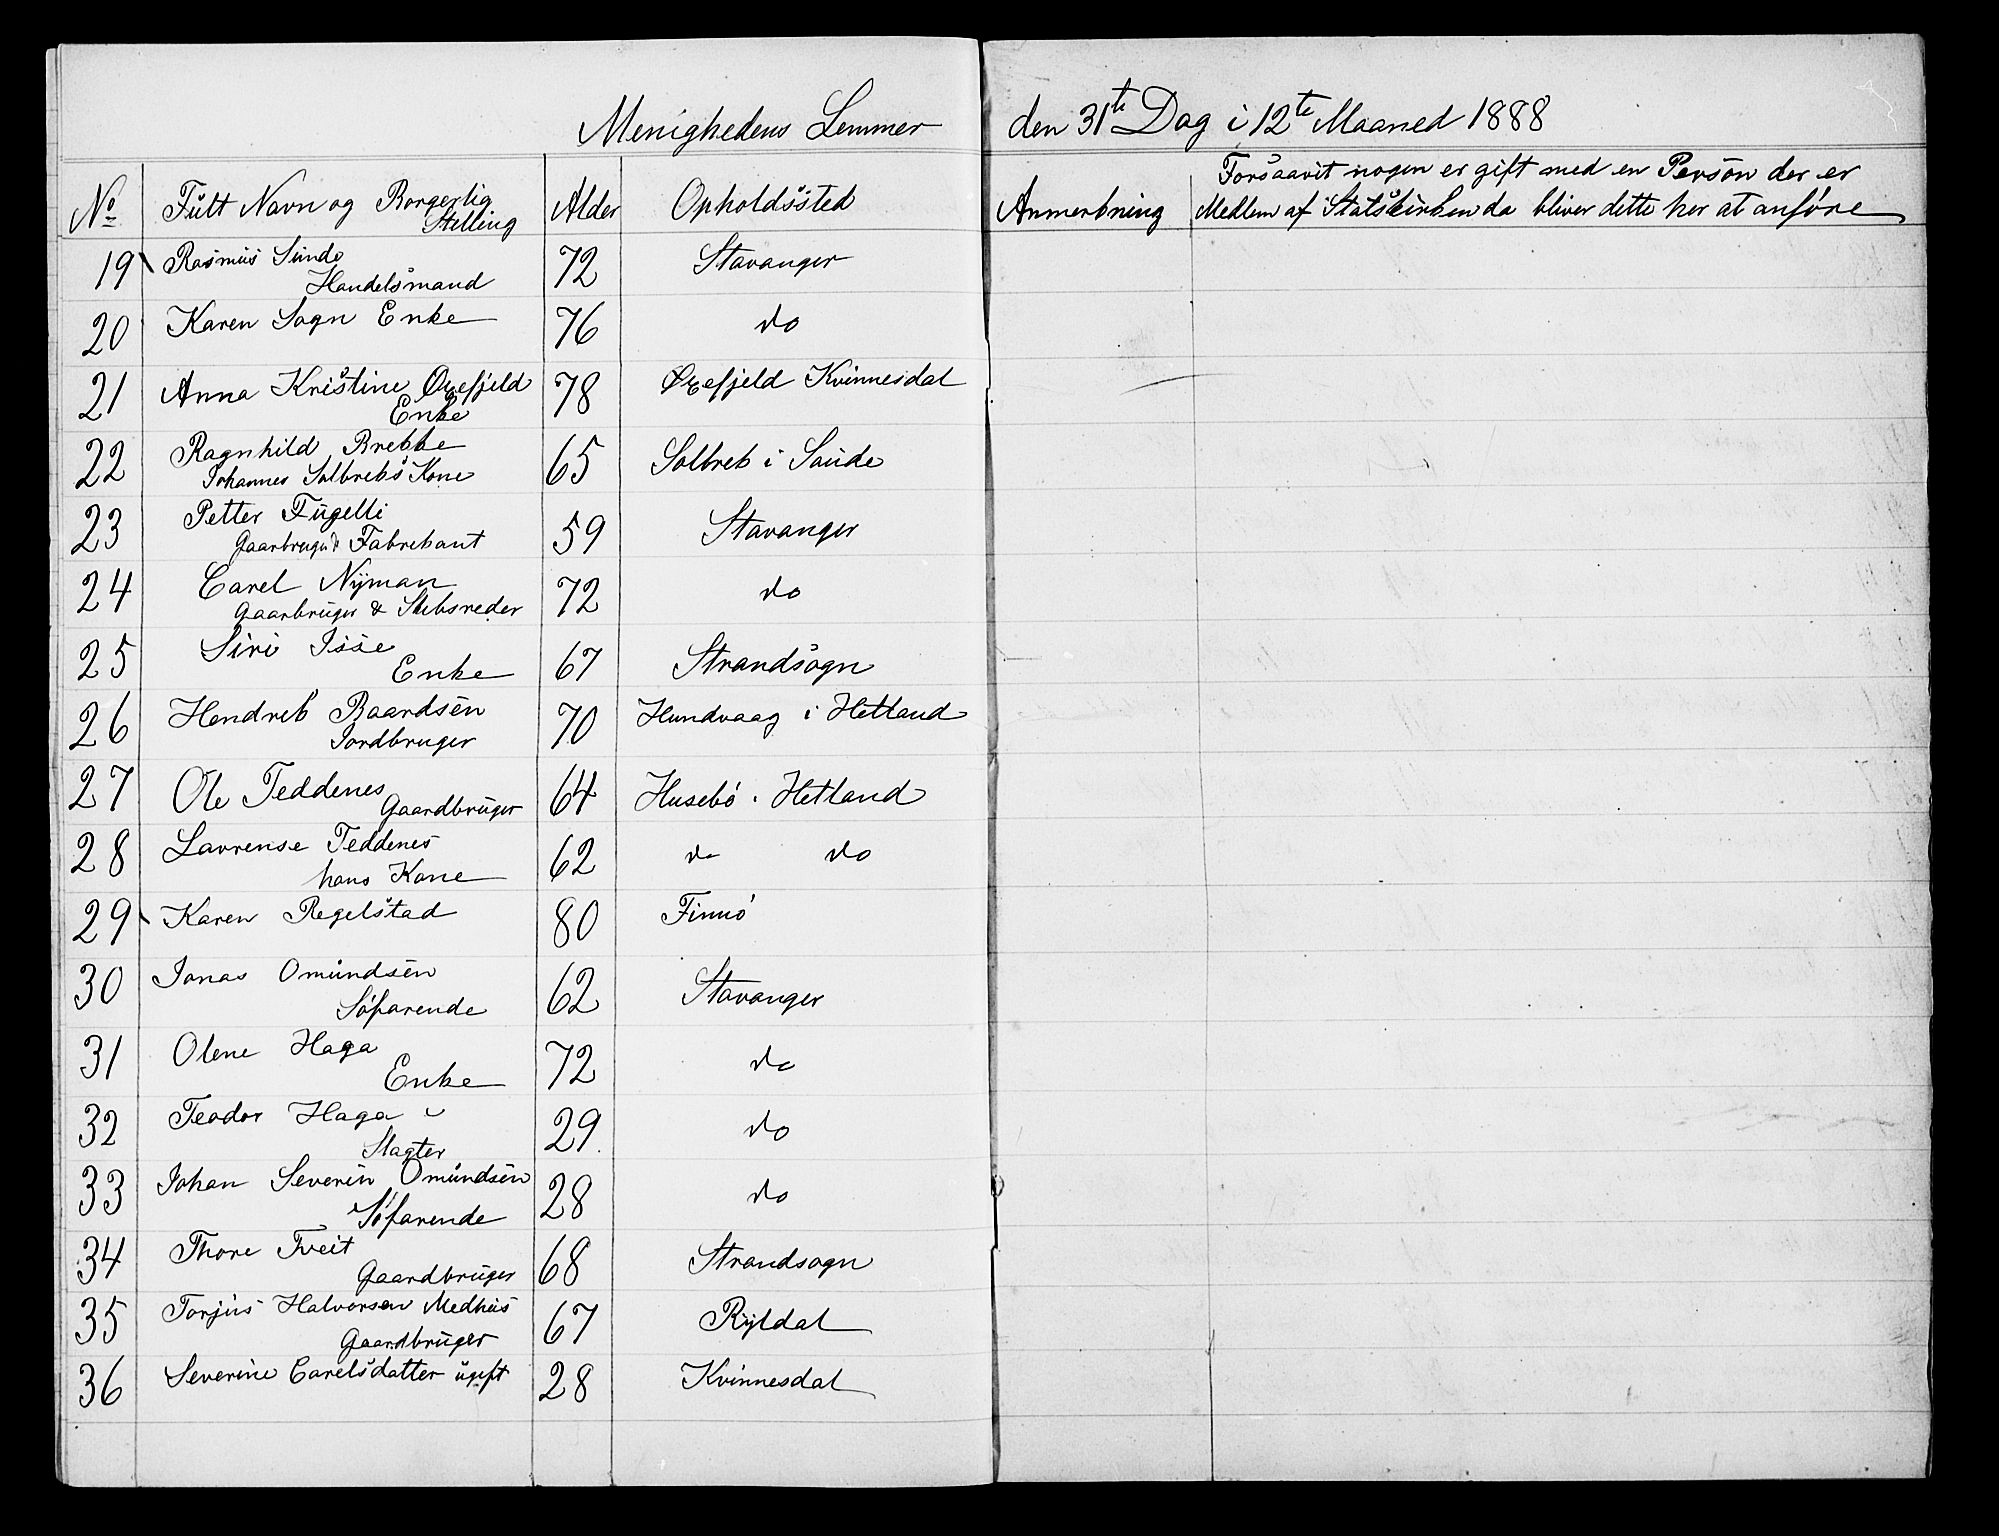 Menighedens Lemmer den 31te Dag i 12te Maaned 1888
No Fült Navn og Borgerlig Stilling Alder Opholdssted Anmerkning Forsaavit nogen er gift med en Person der er
Medlem af Statskirken da bliver dette her at anføre
19 Rasmus Sunde
Handelsmand 72 Stavanger
20 Karen Sogn Enke 76 do
21 Anna Kristine Øxefjeld
Enke 78 Øxefjeld Kvinnesdal
22 Ragnhild Brekke
Johannes Solbreks Kone 65 Solbrek i Saude
23 Petter Fügelli
Gaarbruger & Fabrekant 59 Stavanger
24 Carel Nÿman
Gaarbruger & Skebsreder 72 do
25 Siri Isse
Enke 67 Strandsogn
26 Hendrek Baardsen
Jordbruger 70 Hundvaag i Hetland
27 Ole Teddenes
Gaardbruger 64 Husebø i Hetland
28 Lavrense Teddenes
hans Kone 62 do do
29 Karen Regelstad 80 Finnø
30 Jonas Omundsen
Søfarende 62 Stavanger
31 Olene Haga
Enke 72 do
32 Teodor Haga
Slagter 29 do
33 Johan Severin Omundsen
Søfarende 28 do
34 Thore Tveit
Gaardbruger 68 Strandsogn
35 Torjus Halvorsen Medhus
Gaardbruger 67 Ryldal
36 Severine Carelsdatter ugift 28 Kvinnesdal